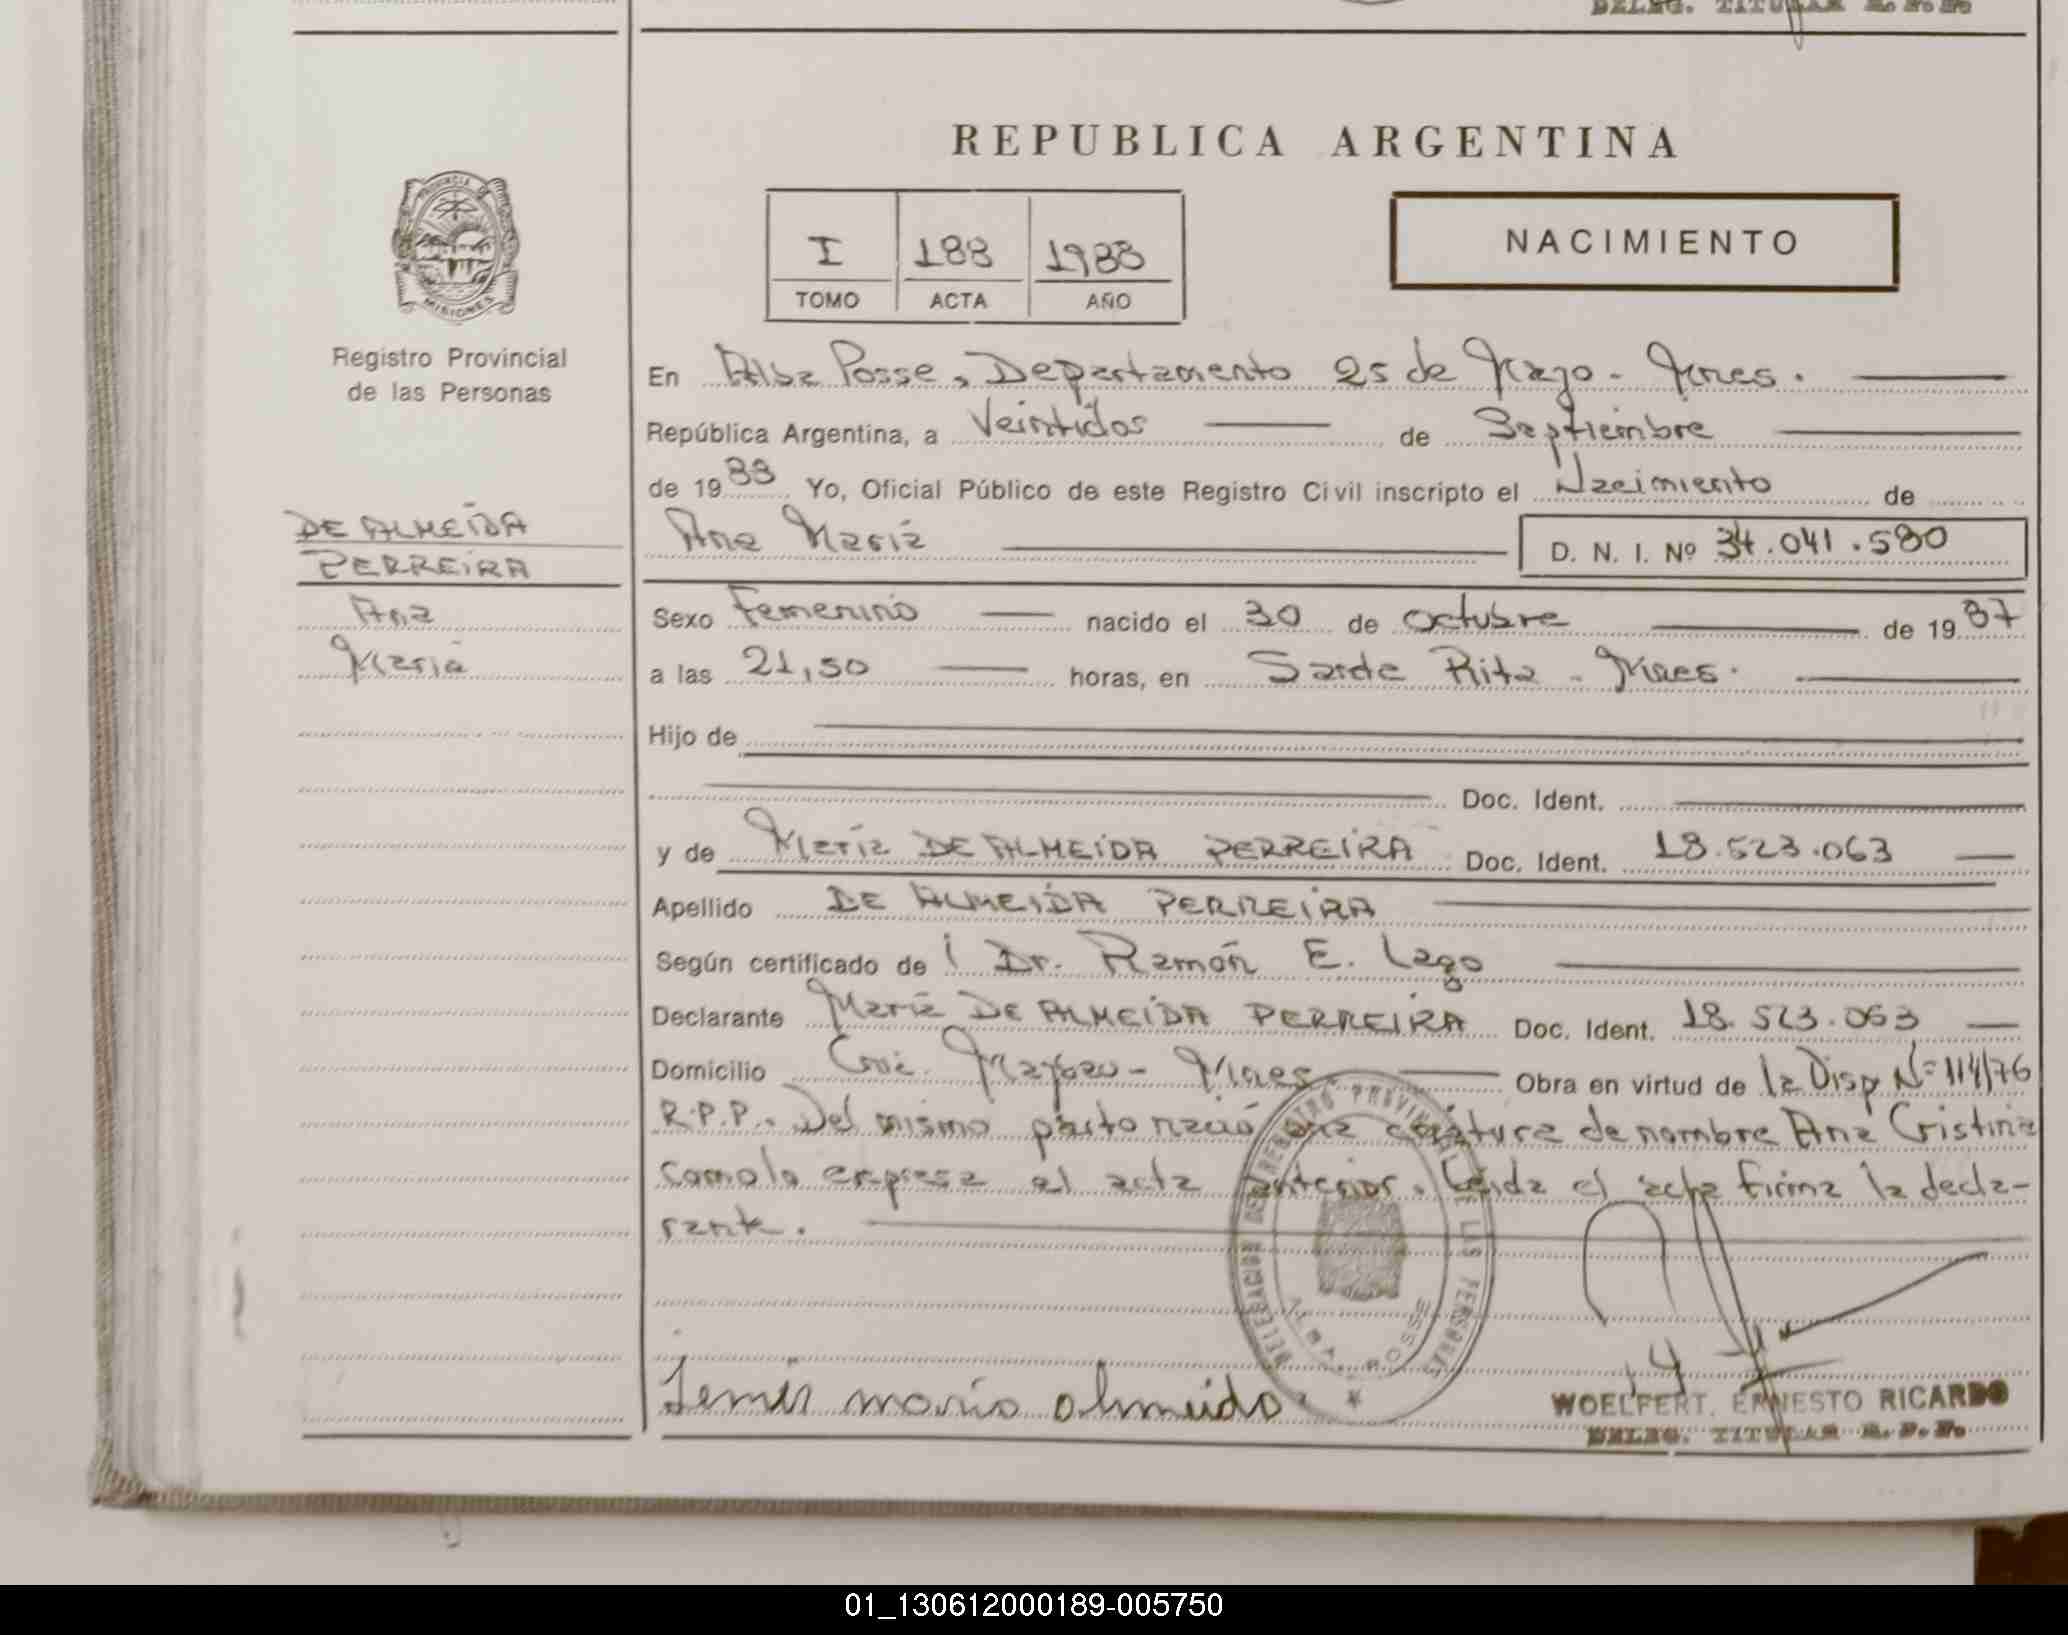 DELEG. TITULAR R. P. P.
REPUBLICA ARGENTINA
PROVINCIA DE MISIONES
Registro Provincial
de las Personas
I 188 1988
TOMO ACTA AÑO
NACIMIENTO
DE ALMEIDA
PERREIRA
Ana
Maria
En Alba Posse, Departamento 25 de Mayo - Mnes.
República Argentina, a Veintidos de Septiembre
de 1988 Yo, Oficial Público de este Registro Civil inscripto el Nacimiento de
Ana María D. N. I. Nº 34.041.580
Sexo Femenino nacido el 30 de octubre de 1987
a las 21,50 horas, en Santa Rita - Mnes.
Hijo de
Doc. Ident.
y de María DE ALMEIDA PERREIRA Doc. Ident. 18.523.063
Apellido DE ALMEIDA PERREIRA
Según certificado de Dr. Ramón E. Lago
Declarante María DE ALMEIDA PERREIRA Doc. Ident. 18.523.063
Domicilio Mnes Obra en virtud de la Disp Nº 114/76
R.P.P. Del mismo parto nació una criatura de nombre Ana Cristina
como lo expresa el acta anterior. Leida el acta firma la decla-
rante.
DELEGACION DEL REGISTRO PROVINCIAL DE LAS PERSONAS
ALBA POSSE
maria almeida
WOELFERT, ERNESTO RICARDO
DELEG. TITULAR R. P. P.
01_130612000189-005750